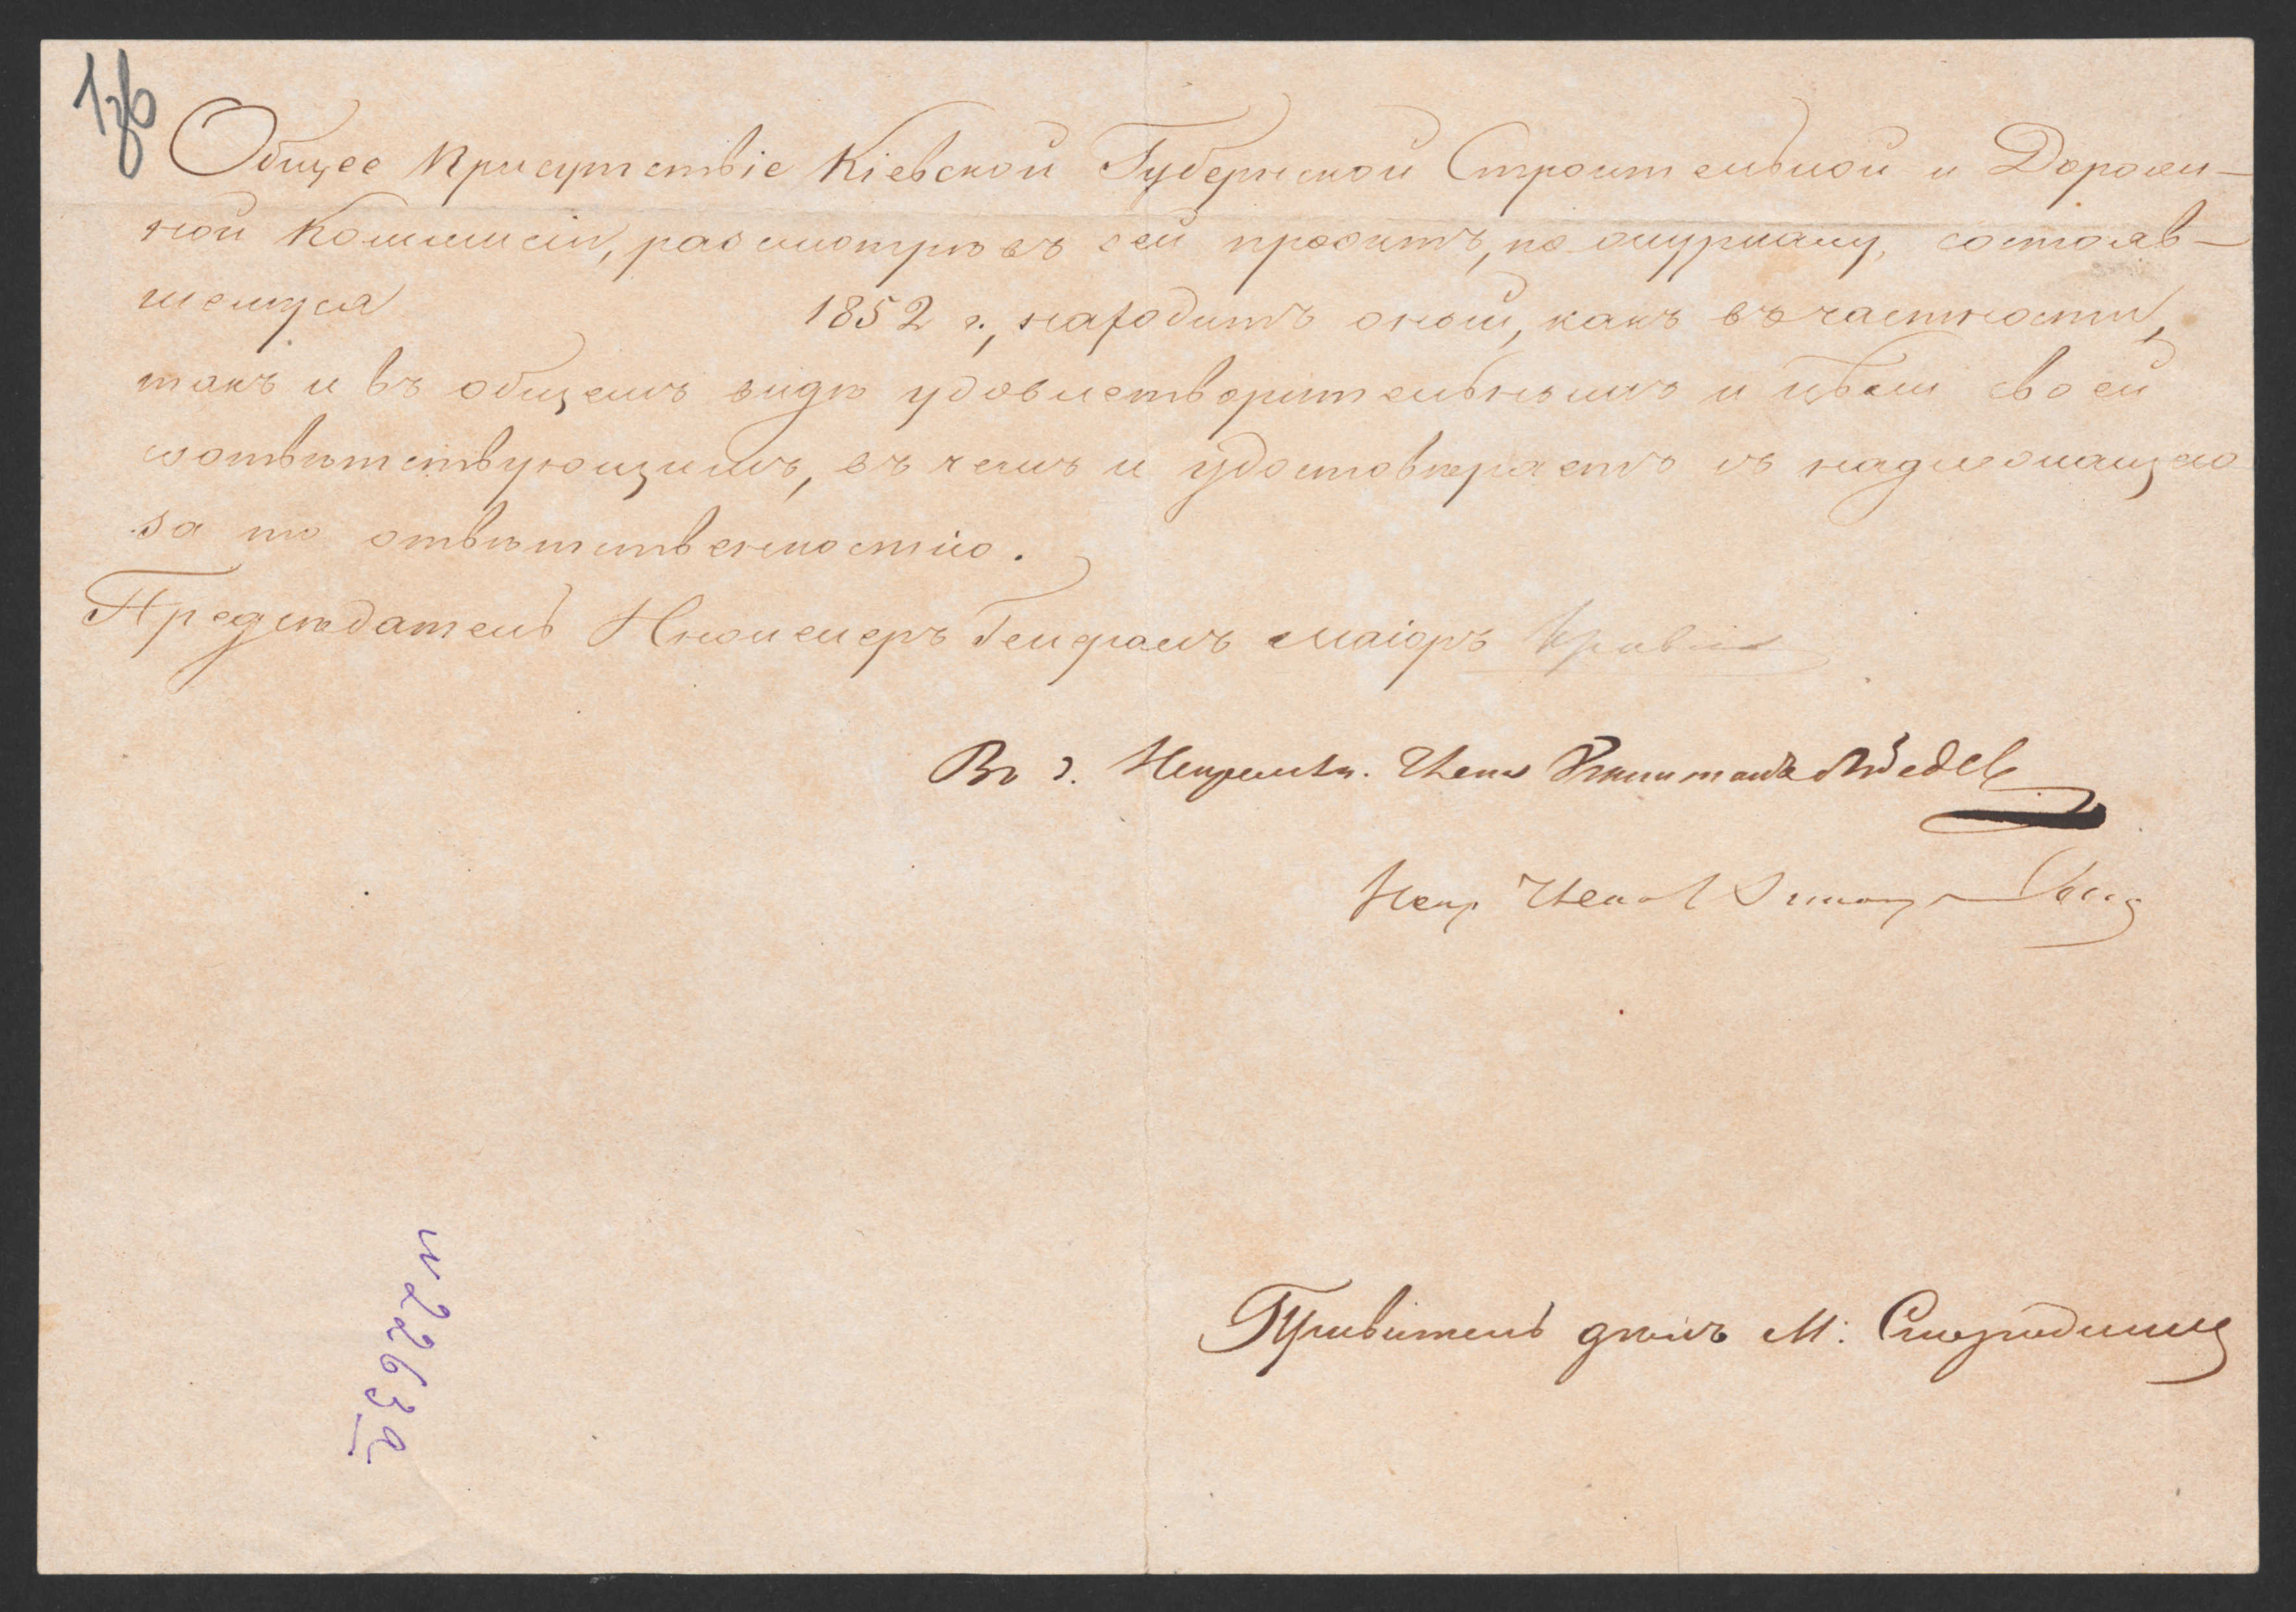 Общее Присутствіе Кіевской Губернской Строительной и Дорож-
ной Коммисіи, разсмотрѣвъ сей проэктъ, по журналу, состояв-
шемуся 1852 г., находитъ оный, какъ въ частности,
такъ и въ общемъ видѣ удовлетворительнымъ и цѣли своей
соотвѣтствующимъ, въ чемъ и удостовѣряетъ съ надлежащею
за то отвѣтственностію.
Предсѣдатель Инженеръ Генералъ Маіоръ
Непремѣн. Членъ Капитанъ
Непр Членъ
дѣлъ М:
№ 2263а